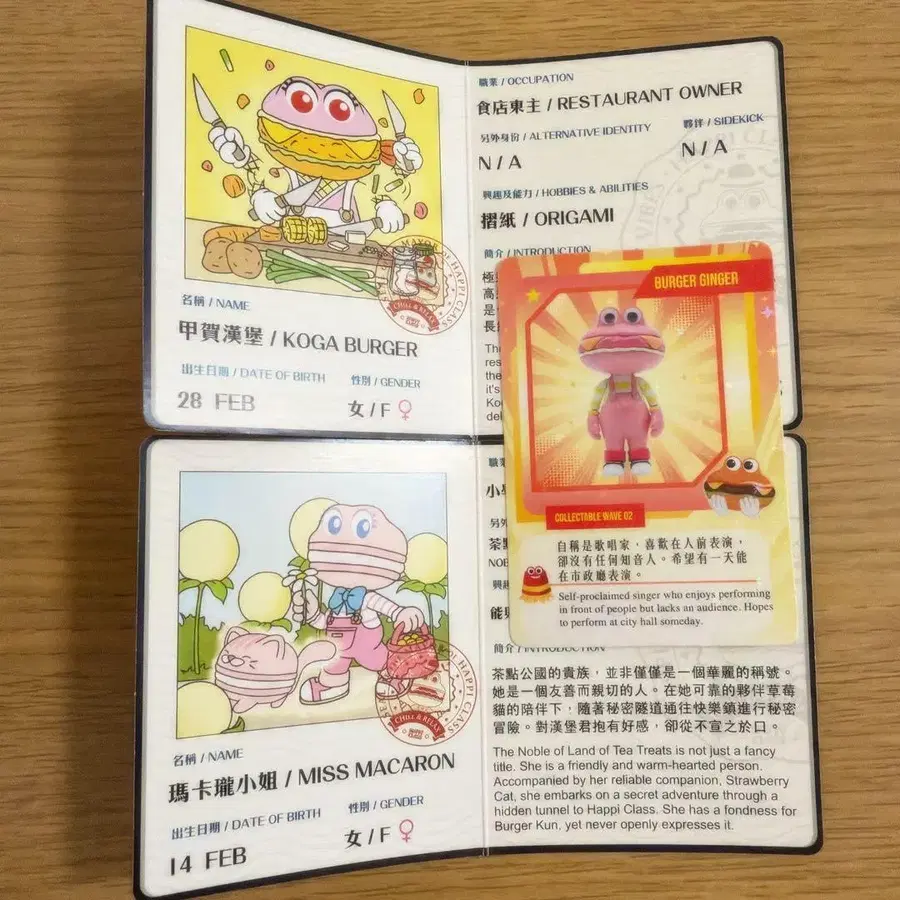 職業 / OCCUPATION
食店東主 / RESTAURANT OWNER
另外身份 / ALTERNATIVE IDENTITY
夥伴 / SIDEKICK
N / A
N / A
興趣及能力 / HOBBIES & ABILITIES
摺紙 / ORIGAMI
簡介 / INTRODUCTION
極
高
是
長
Th
res
the
it's
Ko
del
名稱 / NAME
甲賀漢堡 / KOGA BURGER
出生日期 / DATE OF BIRTH
性別 / GENDER
28 FEB
女 / F ♀
HAPPI CLASS
CHILL & RELAX
BURGER GINGER
COLLECTABLE WAVE 02
自稱是歌唱家，喜歡在人前表演，
卻沒有任何知音人。希望有一天能
在市政廳表演。
Self-proclaimed singer who enjoys performing
in front of people but lacks an audience. Hopes
to perform at city hall someday.
名稱 / NAME
瑪卡瓏小姐 / MISS MACARON
出生日期 / DATE OF BIRTH
性別 / GENDER
14 FEB
女 / F ♀
HAPPI CLASS
CHILL & RELAX
職業
小
另外
茶點
NOB
興趣
能
簡介 / INTRODUCTION
茶點公國的貴族，並非僅僅是一個華麗的稱號。
她是一個友善而親切的人。在她可靠的夥伴草莓
貓的陪伴下，隨著秘密隧道通往快樂鎮進行秘密
冒險。對漢堡君抱有好感，卻從不宣之於口。
The Noble of Land of Tea Treats is not just a fancy
title. She is a friendly and warm-hearted person.
Accompanied by her reliable companion, Strawberry
Cat, she embarks on a secret adventure through a
hidden tunnel to Happi Class. She has a fondness for
Burger Kun, yet never openly expresses it.